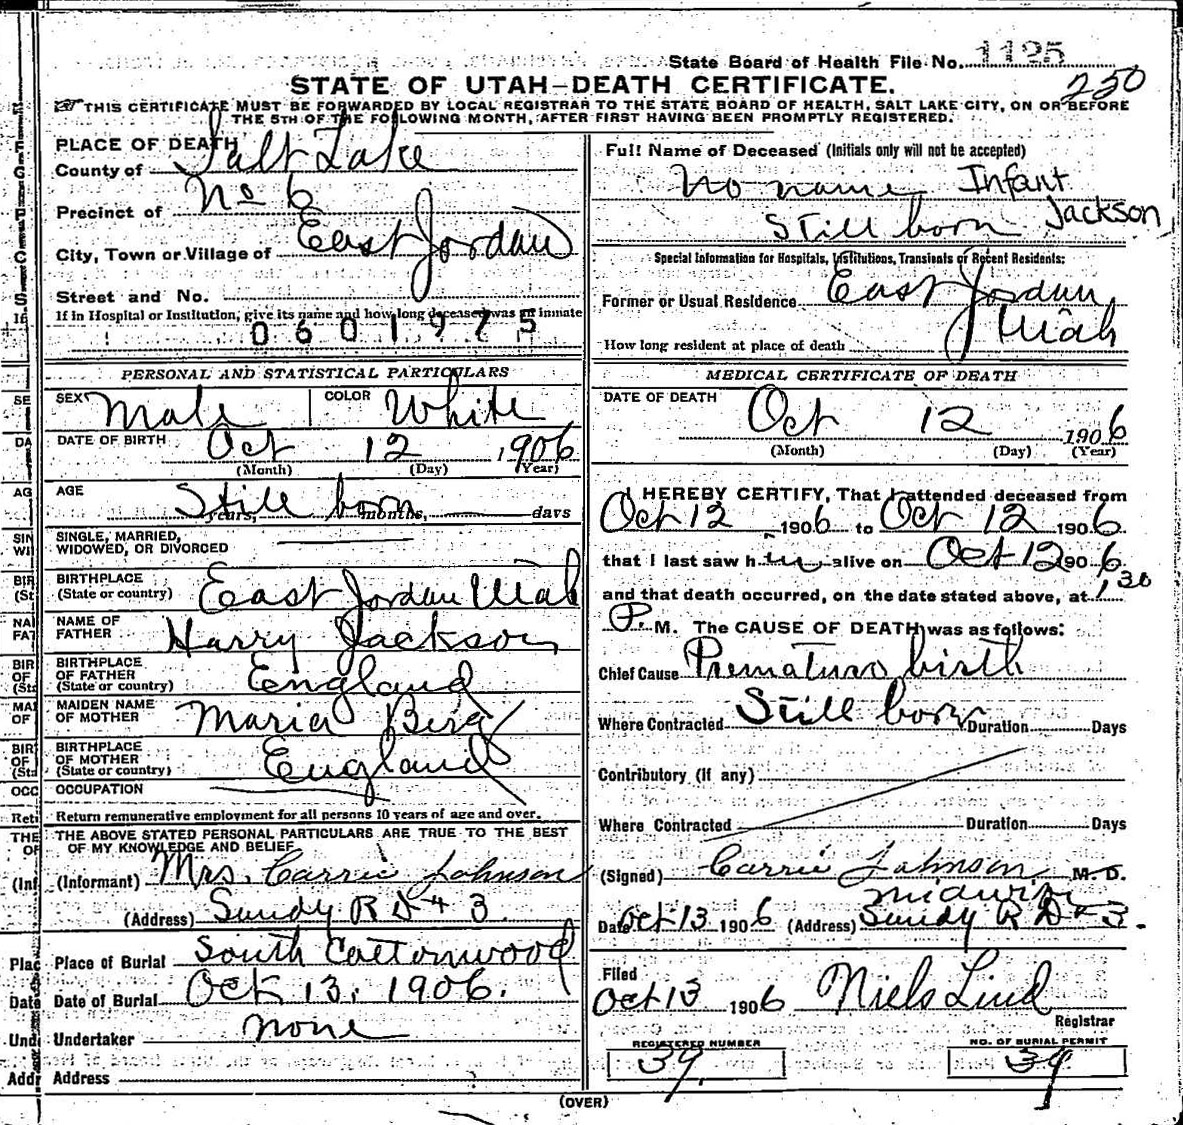 State Board of Health File No. 1125
250
STATE OF UTAH—DEATH CERTIFICATE.
THIS CERTIFICATE MUST BE FORWARDED BY LOCAL REGISTRAR TO THE STATE BOARD OF HEALTH, SALT LAKE CITY, ON OR BEFORE
THE 5TH OF THE FOLLOWING MONTH, AFTER FIRST HAVING BEEN PROMPTLY REGISTERED.
PLACE OF DEATH
County of Salt Lake
Precinct of No 6
City, Town or Village of East Jordan
Street and No.
If in Hospital or Institution, give its name and how long deceased was an inmate
0601975
PERSONAL AND STATISTICAL PARTICULARS
SEX Male COLOR White
DATE OF BIRTH Oct 12 1906
(Month) (Day) (Year)
AGE Still born
years, months, days
SINGLE, MARRIED,
WIDOWED, OR DIVORCED
BIRTHPLACE
(State or country) East Jordan Utah
NAME OF
FATHER Harry Jackson
BIRTHPLACE
OF FATHER
(State or country) England
MAIDEN NAME
OF MOTHER Maria Berg
BIRTHPLACE
OF MOTHER
(State or country) England
OCCUPATION
Return remunerative employment for all persons 10 years of age and over.
THE ABOVE STATED PERSONAL PARTICULARS ARE TRUE TO THE BEST
OF MY KNOWLEDGE AND BELIEF
(Informant) Mrs. Carrie Johnson
(Address) Sandy R D # 3
Place of Burial South Cottonwood
Date of Burial Oct 13, 1906.
Undertaker none
Address
Full Name of Deceased (Initials only will not be accepted)
No name Infant
Still born Jackson
Special Information for Hospitals, Institutions, Transients or Recent Residents:
Former or Usual Residence East Jordan,
Utah
How long resident at place of death
MEDICAL CERTIFICATE OF DEATH
DATE OF DEATH
Oct 12 1906
(Month) (Day) (Year)
I HEREBY CERTIFY, That I attended deceased from
Oct 12 1906 to Oct 12 1906.
that I last saw him alive on Oct 12 1906.
and that death occurred, on the date stated above, at 1,30
P. M. The CAUSE OF DEATH was as follows:
Chief Cause Premature birth
Where Contracted Still born Duration Days
Contributory (if any)
Where Contracted Duration Days
(Signed) Carrie Johnson M. D.
midwife
Date Oct 13 1906 (Address) Sandy R D # 3.
Filed
Oct 13 1906 Niels Lind
Registrar
REGISTERED NUMBER
39.
NO. OF BURIAL PERMIT
39
(OVER)